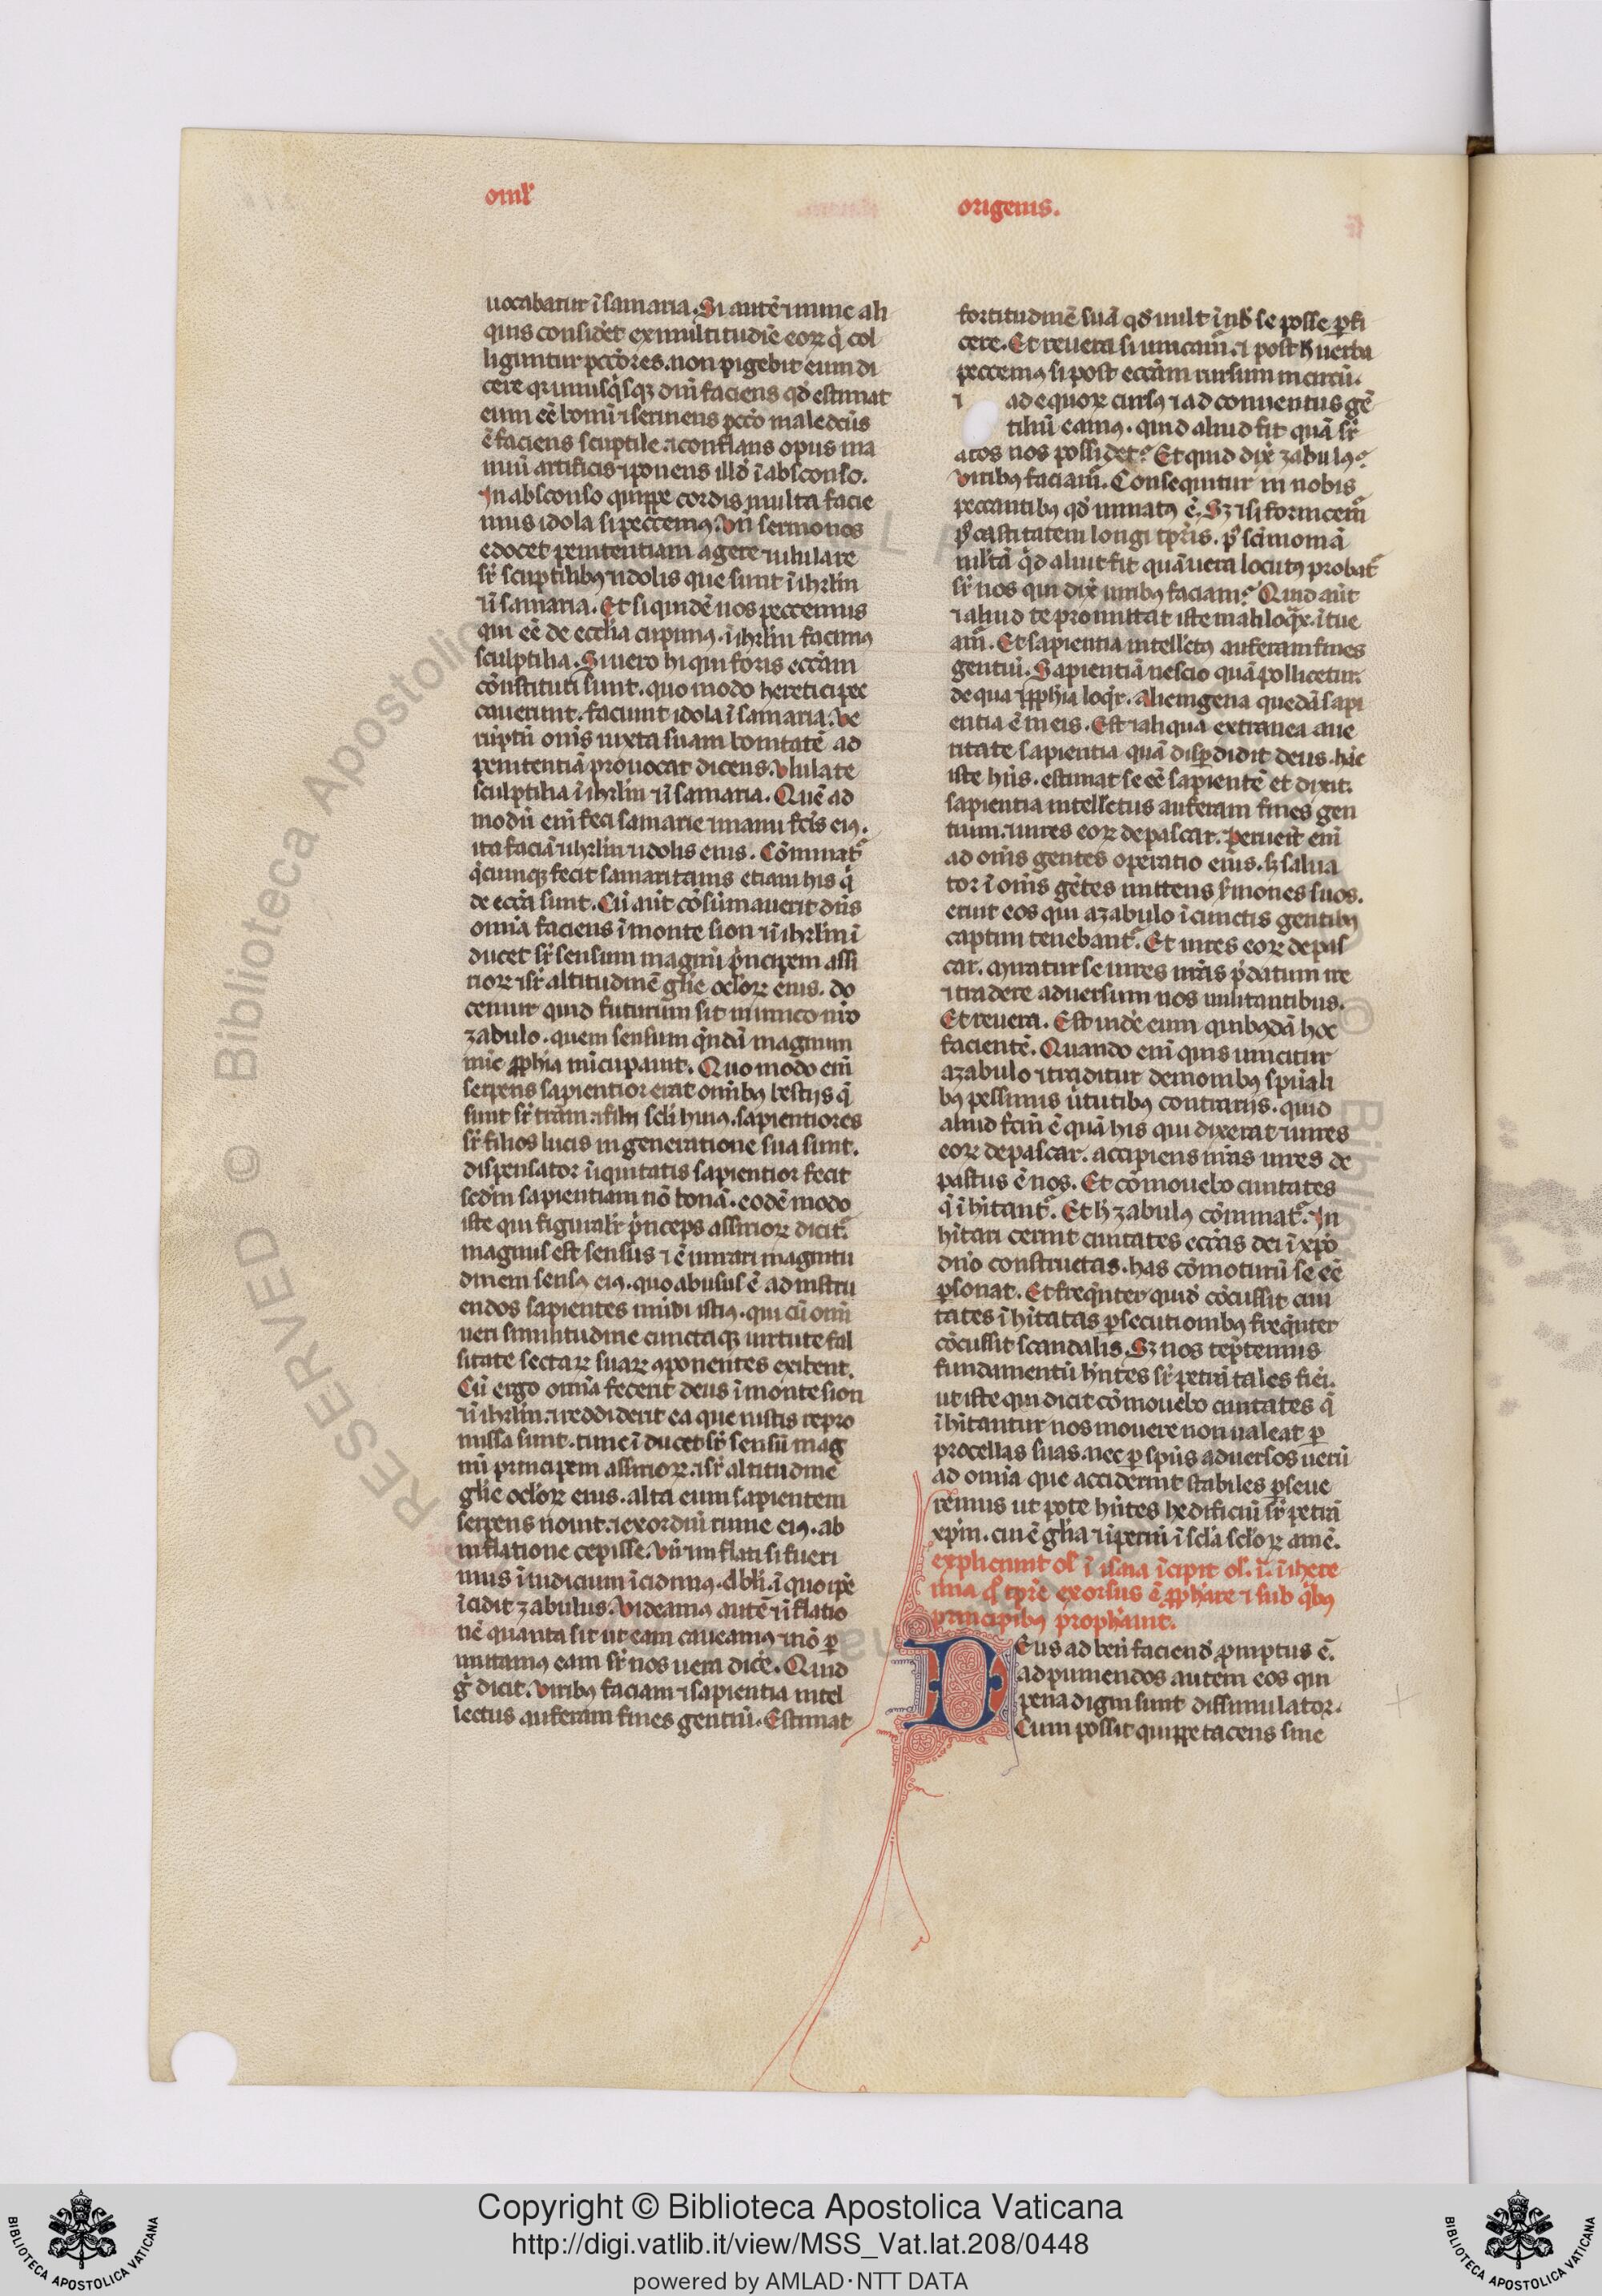 omł
origenis.
uocabatur ī samaria. Si autē ⁊ nunc ali
quis considet ex multitudīe eoꝝ q̇ col
liguntur pctōres. non pigebit eum di
cere qꝛ unusq̇sqꝫ dnī faciens qd̓ estimat
eum eē bonū ⁊ seruiens pctō maledcūs
ē faciens sculptile ⁊ conflans opus ma
nuū artificis ⁊ ponens illd̓ ī absconso.
In absconso quippe cordis multa facie
mus idola si peccemꝰ. Vn̄ sermo nos
edocet penitentiam agere ⁊ ululare
sr̄ sculptilibꝰ ⁊ idolis que sunt ī ihrlm
⁊ ī samaria. Et siquidē nos peccemus
qui eē de eccl̄ia cupimꝰ. ī ihrlm facimꝰ
sculptilia. Si uero hi qui foris eccl̄am
cōnstituti sunt. quo modo heretici pec
cauerunt. faciunt idola ī samaria. Ve
rūptū om̄is iuxta suam bonitatē ad
penitentiā prouocat dicens. Vlulate
sculptilia ī ihrlm ⁊ ī samaria. Quē ad
modū enī feci samarie ⁊ manu fctīs eiꝰ.
ita faciā ⁊ ihrlm ⁊ idolis eius. Cōminat᷑
q̇cunqꝫ fecit samaritanis etiam his q̇
de eccl̄a sunt. Cū aūt cōsūmauerit dn̄s
omīa faciens ī monte sion ⁊ ī ihrlm ī
ducet sr̄ sensum magnū p̓ncipem assi
rioꝝ ⁊ sr̄ altitudinē gl̄ie ocl̓oꝝ eius. do
cemur quid futurum sit inimico nr̄o
zabulo. quem sensum q̇ndā magnum
nūc ꝓphīa nūcupauit. Quo modo enī
serpens sapientior erat om̄ibꝰ bestijs q̄
sunt sr̄ trām ⁊ filij scl̄i huiꝰ. sapientiores
sr̄ filios lucis in generatione sua sunt.
dispensator iniquitatis sapientior fecit
sedm̄ sapientiam nō bonā. eodē modo
iste qui figuralr̄ p̓nceps assirioꝝ dicit᷑.
magnus est sensus ⁊ ē mirari magnitu
dinem sensꝰ eiꝰ. quo abusus ē ad instru
endos sapientes mūdi istiꝰ. qui cū omī
ueri similitudine cunctaqꝫ uirtute fal
sitate sectaꝝ suaꝝ ꝯponentes exibent.
Cū ergo omīa fecerit deus ī monte sion
⁊ ī ihrlm. ⁊ reddiderit ea que iustis repro
missa sunt. tunc ī ducet sr̄ sensū mag
nū principem assirioꝝ. ⁊ sr̄ altitudinē
gl̄ie ocl̓oꝝ eius. alta eum sapientem
serpens nouit. ⁊ exordiū tune eiꝰ. ab
inflatione cepisse. Vn̄ ⁊ inflati si fueri
mus ī iudicium īcidimꝰ. dbl̄i. ī quo ip̄e
īcidit zabulus. Videamꝰ autē ⁊ īflatio
nē quanta sit ut eam caueamꝰ ⁊ nō ꝑ
mittamꝰ eam sr̄ nos uera dicē. Quid
g̓ dicit. Viribꝰ faciam ⁊ sapientia intel
lectus auferam fines gentiū. Estimat
fortitudinē suā qd̓ uult ī nb̓ se posse ꝑfi
cere. Et reuera si uincam᷑. ⁊ post h̓ uerba
peccemꝰ si post eccl̄am rursum in circū.
⁊ ad equoꝝ cursꝰ ⁊ ad conuentus gē
tiliū eamꝰ. quid aliud fit quā sr̄
atos nos possidet? Et quid dix̄ zabulꝰ?
Viribꝰ faciam̄. Consequitur in nobis
peccantibꝰ qd̓ minatꝰ ē. Sꝫ ⁊ si fornicem᷑
p̓ castitatem longi tp̄ris. p̓ sc̄imoniā
mltā q̇d aliut fit quā uera locutꝰ probat᷑
sr̄ nos qui dix̄ uiribꝰ faciam? Quid aūt
⁊ aliud te promittat iste maliloq̄x. ītue
am̄. Et sapientia intellectꝰ auferam fines
gentiū. Sapientiā nescio quā pollicetur.
de qua ⁊ ꝓphīa loq̇r. Alienigena quedā sapi
entia ē in eis. Est ⁊ aliqua extranea a ue
ritate sapientia quā disꝑdidit deus. hāc
iste hn̄s. estimat se eē sapientē et dixit.
sapientia intellectus auferam fines gen
tium. ⁊ uires eoꝝ depascar. Peruēit enī
ad om̄is gentes operatio eius. sꝫ salua
tor ī om̄is gētes mittens s̓mones suos.
eruit eos qui a zabulo ī cunctis gentibꝰ
captiui tenebant᷑. Et uires eoꝝ depas
car. Minatur se uires nrās p̓datum ire
⁊ tradere aduersum nos militantibus.
Et reuera. Est uidē eum quibꝰdā hoc
facientē. Quando enī quis uincitur
a zabulo ⁊ traditur demonibꝰ spūali
bꝰ pessimis ūtutibꝰ contrarijs. quid
aliud fctm̄ ē quā his qui dixerat uires
eoꝝ depascar. accipiens nrās uires de
pastus ē nos. Et cōmouebo ciuitates
q̄ īhītant᷑. Et h̓ zabulꝰ cōminat᷑. In
hītari cernit ciuitates eccl̄as dei ī xp̄o
dn̄o constructas. has cōmoturū se eē
ꝑsonat. Et freq̄nter quid̓ cōcussit ciui
tates īhītatas ꝑsecutionibꝰ freq̄nter
cōcussit scandalis. Sꝫ nos rep̄temus
fundamentū hn̄tes sr̄ petrā tales fiēi.
ut iste qui dicit cōmouebo ciuitates q̄
īhītantur nos mouere non ualeat ꝑ
procellas suas. nec ꝑ spūs aduersos uerū
ad omīa que acciderint stabiles ꝑseue
remus ut pote hn̄tes hedificiū sr̄ petrā
xp̄m. cui ē gl̄ia ⁊ īperiū ī sc̄la sc̄loꝝ amē.
expliciunt ol̓ ī isaia īcipit ol̓. ī. ī ihere
mia q̓ tpr̄e exorsus ē ꝓphāre ⁊ sub q̇bꝰ
principibꝰ prophāuit.
Deus ad bn̄ faciend̓ ꝓmptus ē.
ad puniendos autem eos qui
pena digni sunt dissimulator.
Cum possit quippe tacens sine
Copyright © Biblioteca Apostolica Vaticana
http://digi.vatlib.it/view/MSS_Vat.lat.208/0448
powered by AMLAD·NTT DATA